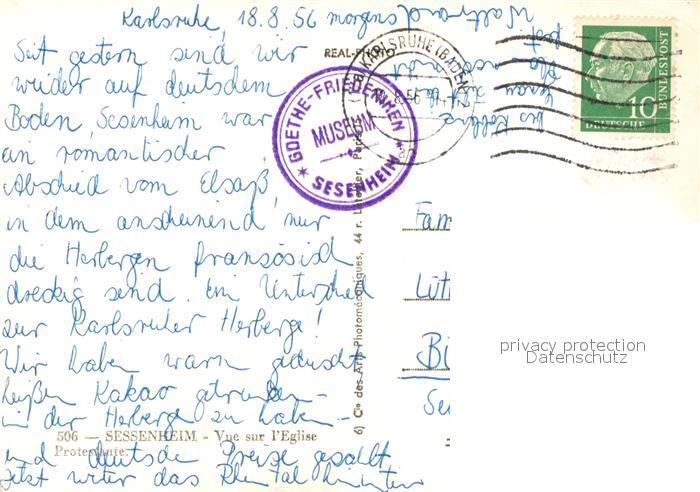 Karlsruhe, 18.8.56 morgens
Seit gestern sind wir
wieder auf deutschem
Boden Sesenheim war
ein romantischer
Abschied vom Elsaß,
in dem anscheinend nur
die Herbergen französisch
dreckig sind. Ein Unterschied
zur Karlsruher Herberge!
Wir haben warm geduscht
heißen Kakao getrunken -
in der Herberge zu haben -
und deutsche Preise gezahlt
Jetzt weiter das Rheintal hinunter
bis Koblenz
Waltraud
REAL-PHOTO
GOETHE-FRIEDERIKEN
MUSEUM
SESENHEIM
KARLSRUHE (BADEN)
10
DEUTSCHE
BUNDESPOST
6) Cie des Arts Photomécaniques, 44 r. Letellier, Paris
Fam
Lütt
Bi
privacy protection
Datenschutz
506 — SESSENHEIM - Vue sur l'Eglise
Protestante